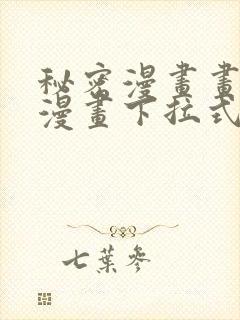 秘密漫畫畫
漫畫下拉式
七葉參